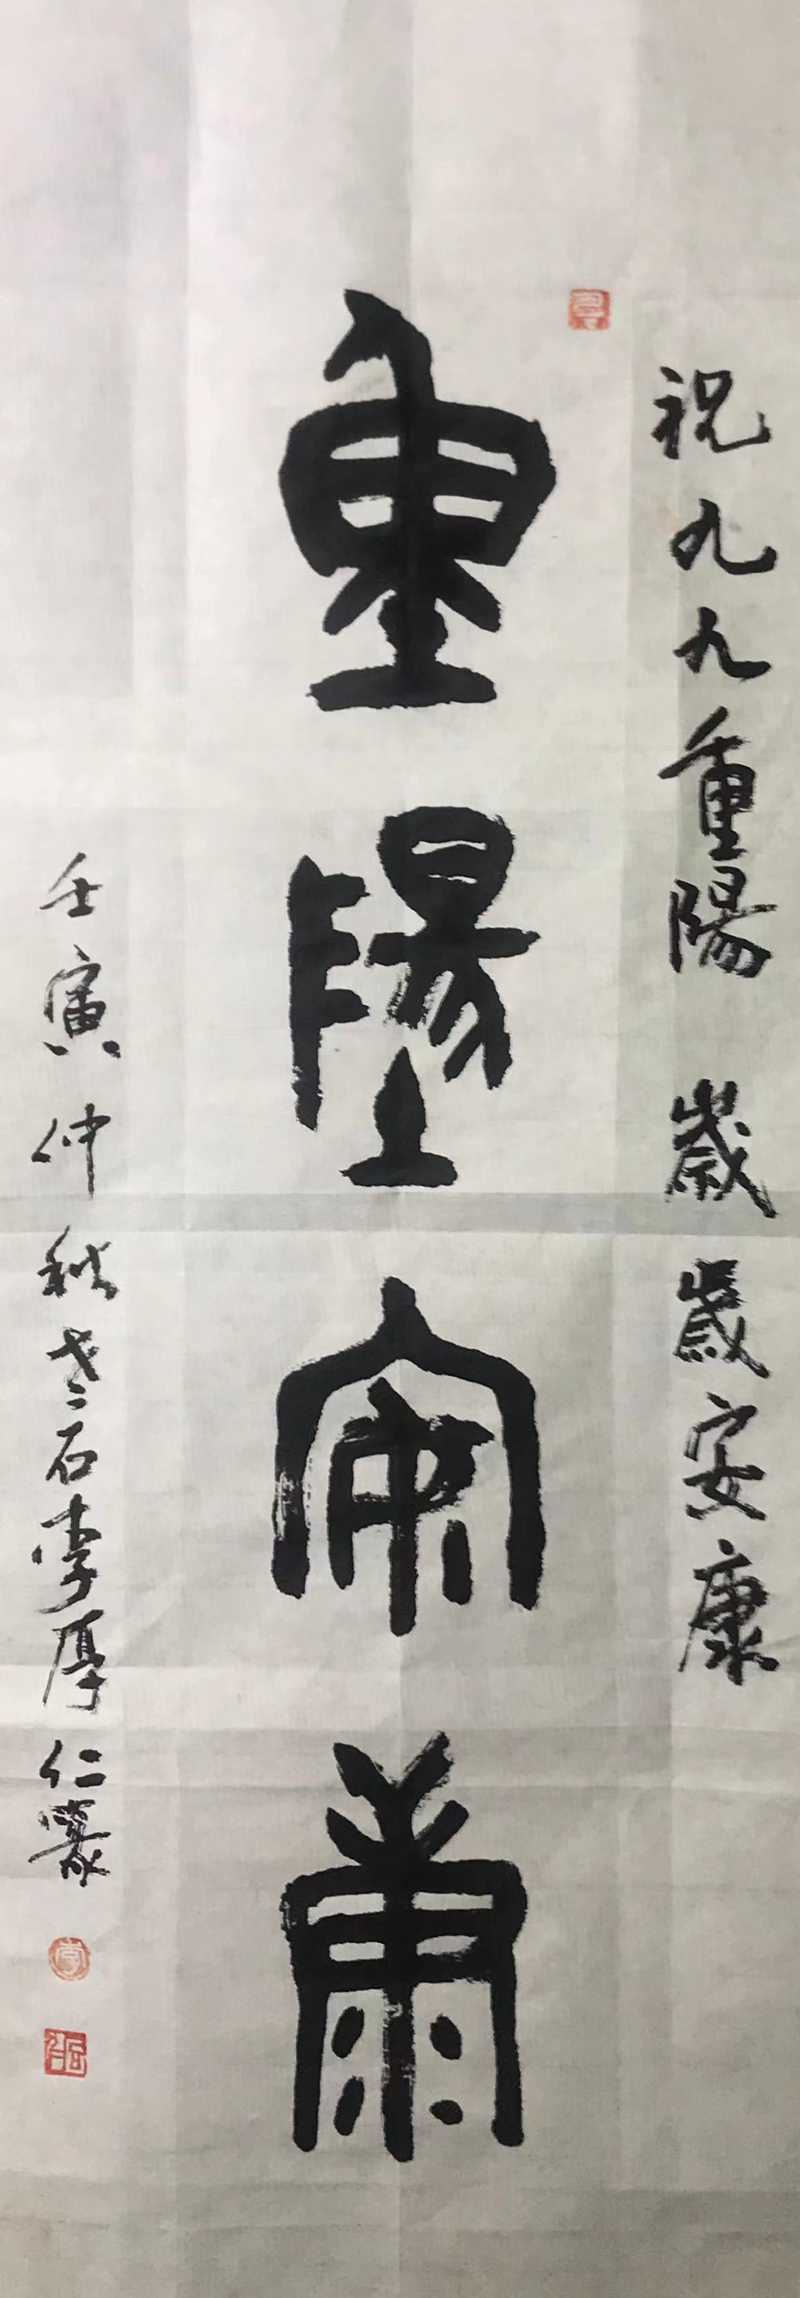 祝九九重陽 歲歲安康
重陽安康
壬寅仲秋老石李厚仁篆